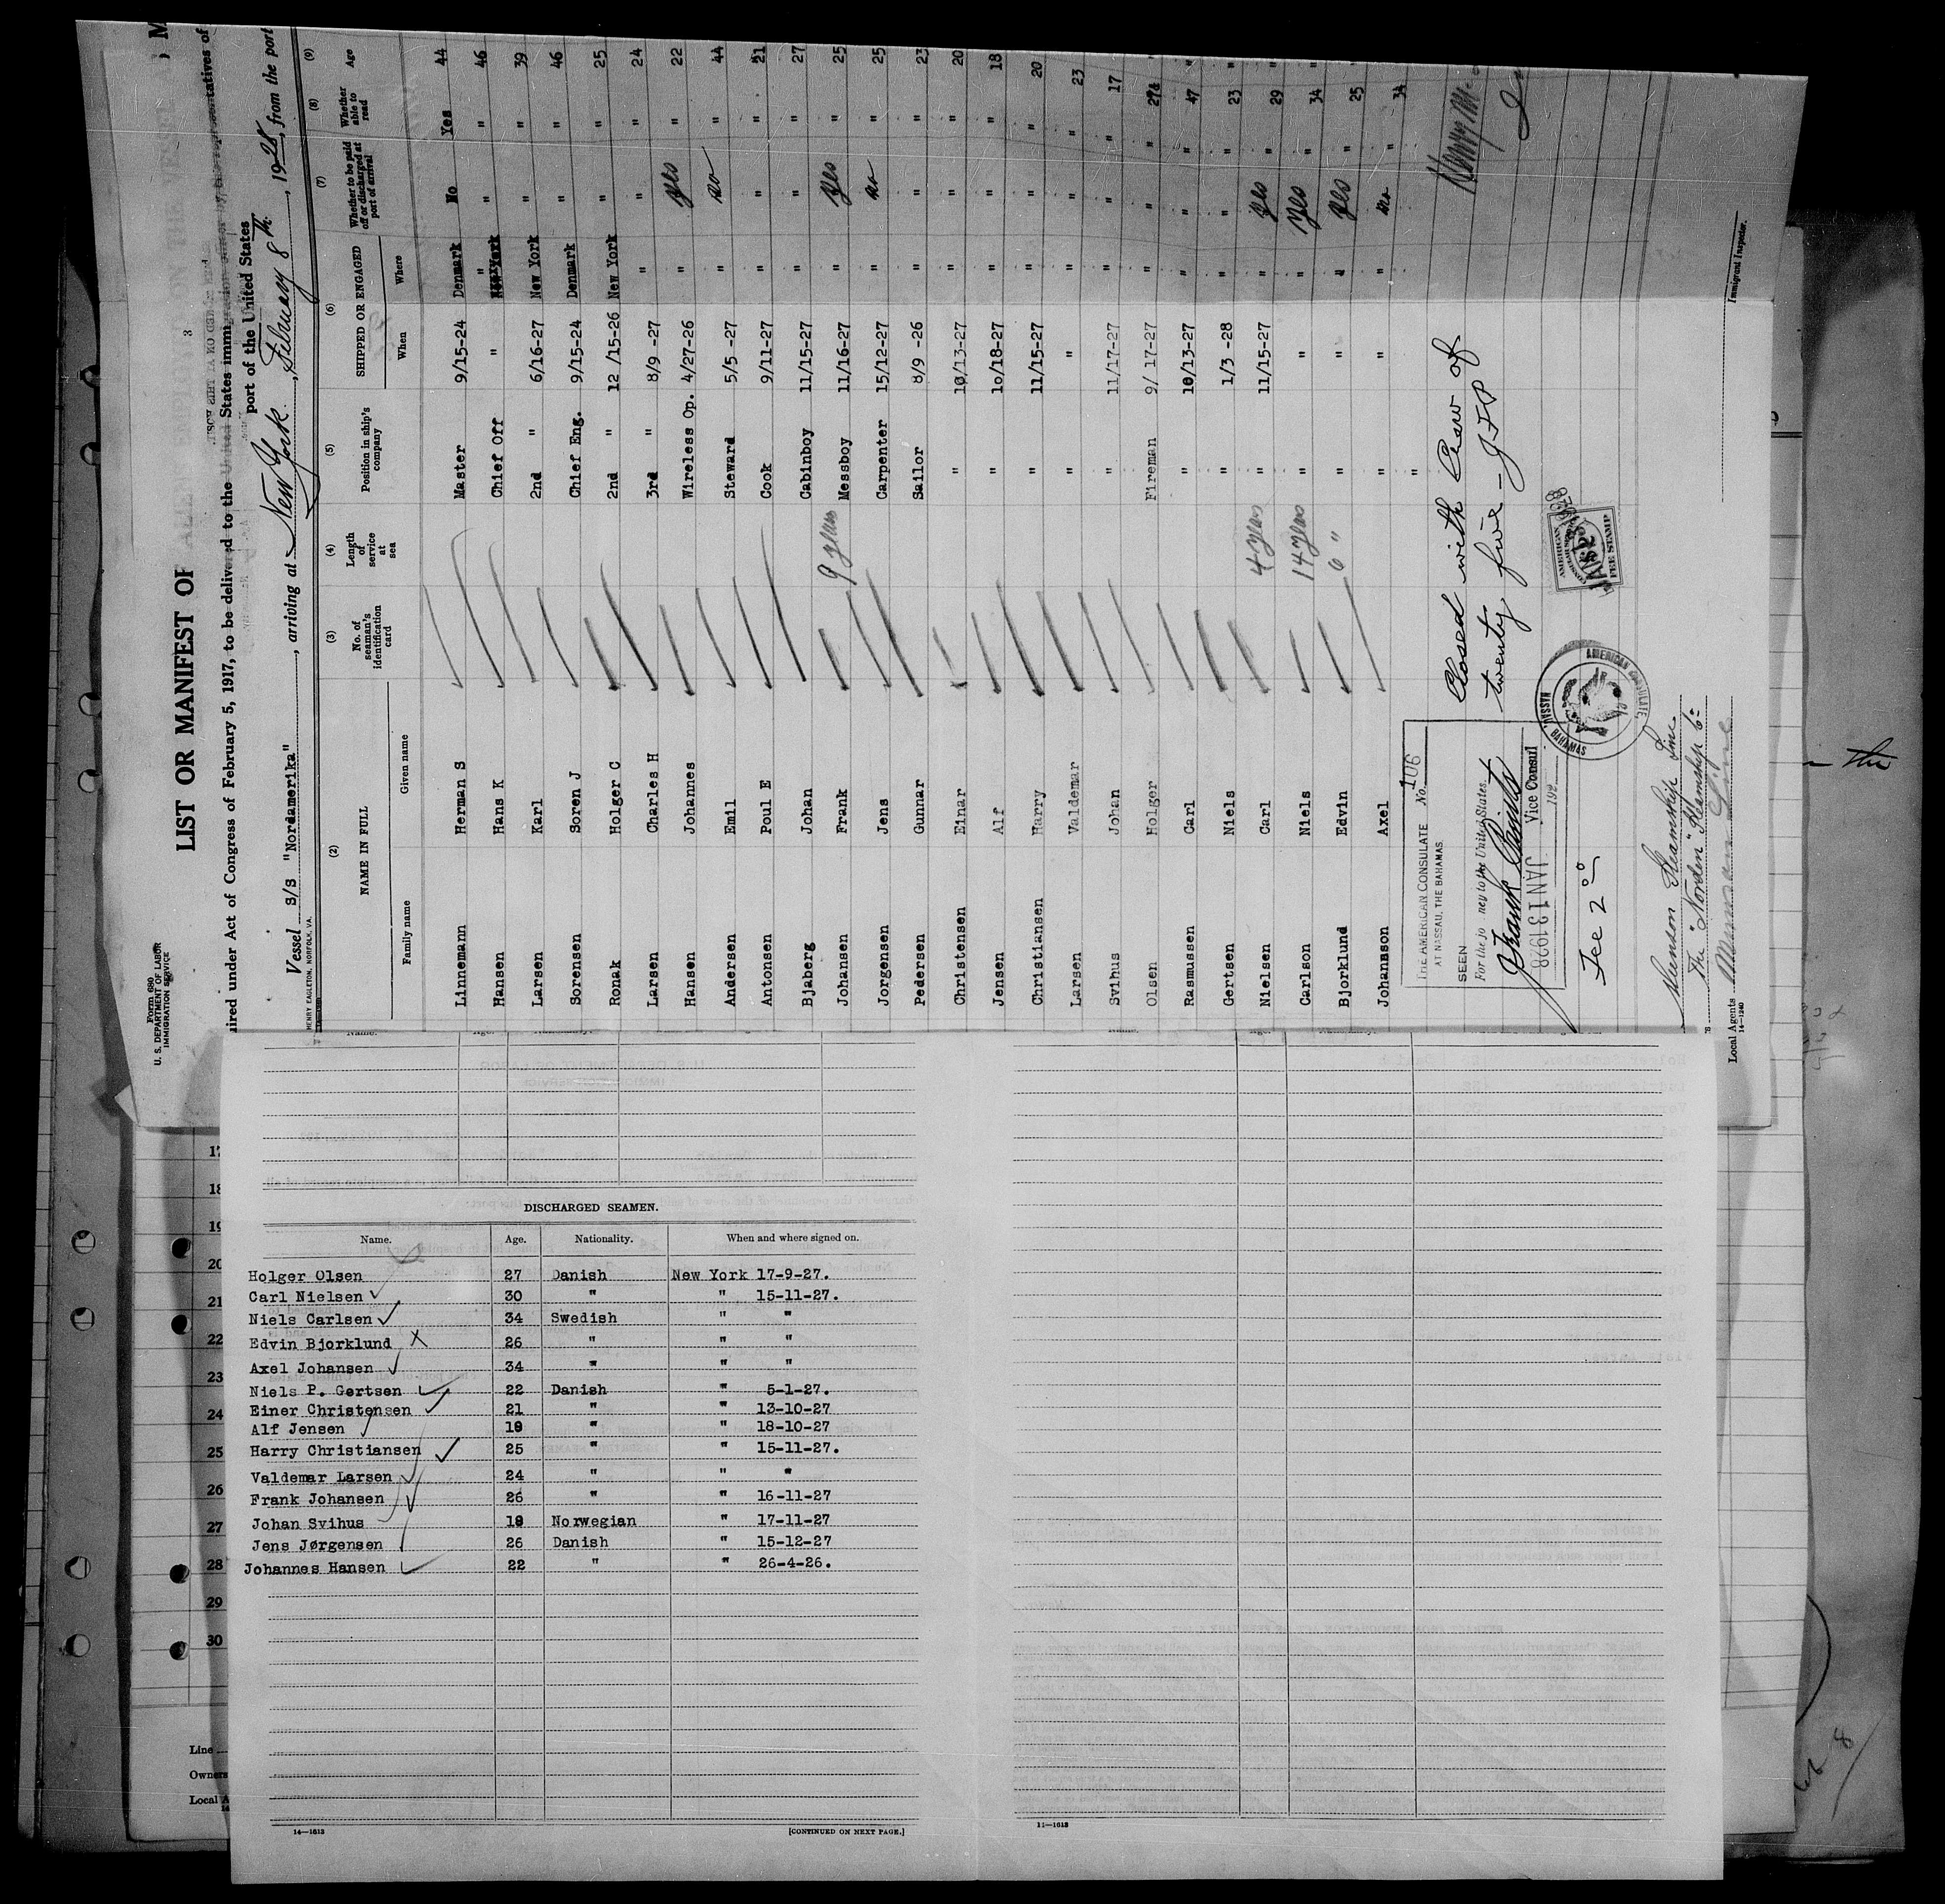 Form 680
U. S. DEPARTMENT OF LABOR
IMMIGRATION SERVICE
3
LIST OR MANIFEST OF
ired under Act of Congress of February 5, 1917, to be delivered to the United States immi
tatives of
port of the United States
Vessel S/S "Nordamerika", arriving at New York, February 8th, 1928, from the port
HENRY EAGLETON, NORFOLK, VA.
(2) (3) (4) (5) (6) (7) (8) (9)
NAME IN FULL No. of seaman's identification card Length of service at sea Position in ship's company SHIPPED OR ENGAGED Whether to be paid off or discharged at port of arrival Whether able to read Age
Family name Given name When Where
Linnemann Herman S Master 9/15-24 Denmark No Yes 44
Hansen Hans K Chief Off " " " " 46
Larsen Karl 2nd " 6/16-27 New York " " 39
Sorensen Soren J Chief Eng. 9/15-24 Denmark " " 46
Ronak Holger C 2nd " 12 /15-26 New York " " 25
Larsen Charles H 3rd " 8/9 -27 " " " 24
Hansen Johannes Wireless Op. 4/27-26 " yes " 22
Andersen Emil Steward 5/5 -27 " no " 44
Antonsen Poul E Cook 9/11-27 " " " 21
Bjaberg Johan Cabinboy 11/15-27 " " " 27
Johansen Frank 9 years Messboy 11/16-27 " yes " 25
Jorgensen Jens Carpenter 15/12-27 " no " 25
Pedersen Gunnar Sailor 8/9 -26 " " " 23
Christensen Einar " 10/13-27 " " " 20
Jensen Alf " 10/18-27 " " " 18
Christiansen Harry " 11/15-27 " " " 20
Larsen Valdemar " " " " " 23
Svihus Johan " 11/17-27 " " " 17
Olsen Holger Fireman 9/ 17-27 " " "
Rasmussen Carl " 10/13-27 " " " 47
Gertsen Niels " 1/3 -28 " " " 23
Nielsen Carl 4 years " 11/15-27 " yes " 29
Carlson Niels 14 years " " " yes " 34
Bjorklund Edvin 6 " " " " yes " 25
Johansson Axel " " " no " 34
"
THE AMERICAN CONSULATE No. 106
AT NASSAU, THE BAHAMAS.
SEEN
For the jo ney to the United States
Vice Consul
JAN 13 1928
192
Fee 2 00
Closed with Crew of
twenty five -
AMERICAN
FEE STAMP
AMERICAN CONSULATE,
NASSAU, BAHAMAS
Munson Steamship Line
The "Norden" Steamship Co
Local Agents Munson Line
14-1240
Immigrant Inspector.
the
17
18
19
20
21
22
23
24
25
26
27
28
29
30
Line
Owners
Local A
DISCHARGED SEAMEN.
Name. Age. Nationality. When and where signed on.
Holger Olsen 27 Danish New York 17-9-27.
Carl Nielsen 30 " " 15-11-27.
Niels Carlsen 34 Swedish " "
Edvin Bjorklund 26 " " "
Axel Johansen 34 " " "
Niels P. Gertsen 22 Danish " 5-1-27.
Einer Christensen 21 " " 13-10-27
Alf Jensen 19 " " 18-10-27
Harry Christiansen 25 " " 15-11-27.
Valdemar Larsen 24 " " "
Frank Johansen 26 " " 16-11-27
Johan Svihus 18 Norwegian " 17-11-27
Jens Jørgensen 26 Danish " 15-12-27
Johannes Hansen 22 " " 26-4-26.
14—1613 [CONTINUED ON NEXT PAGE.] 11—1613